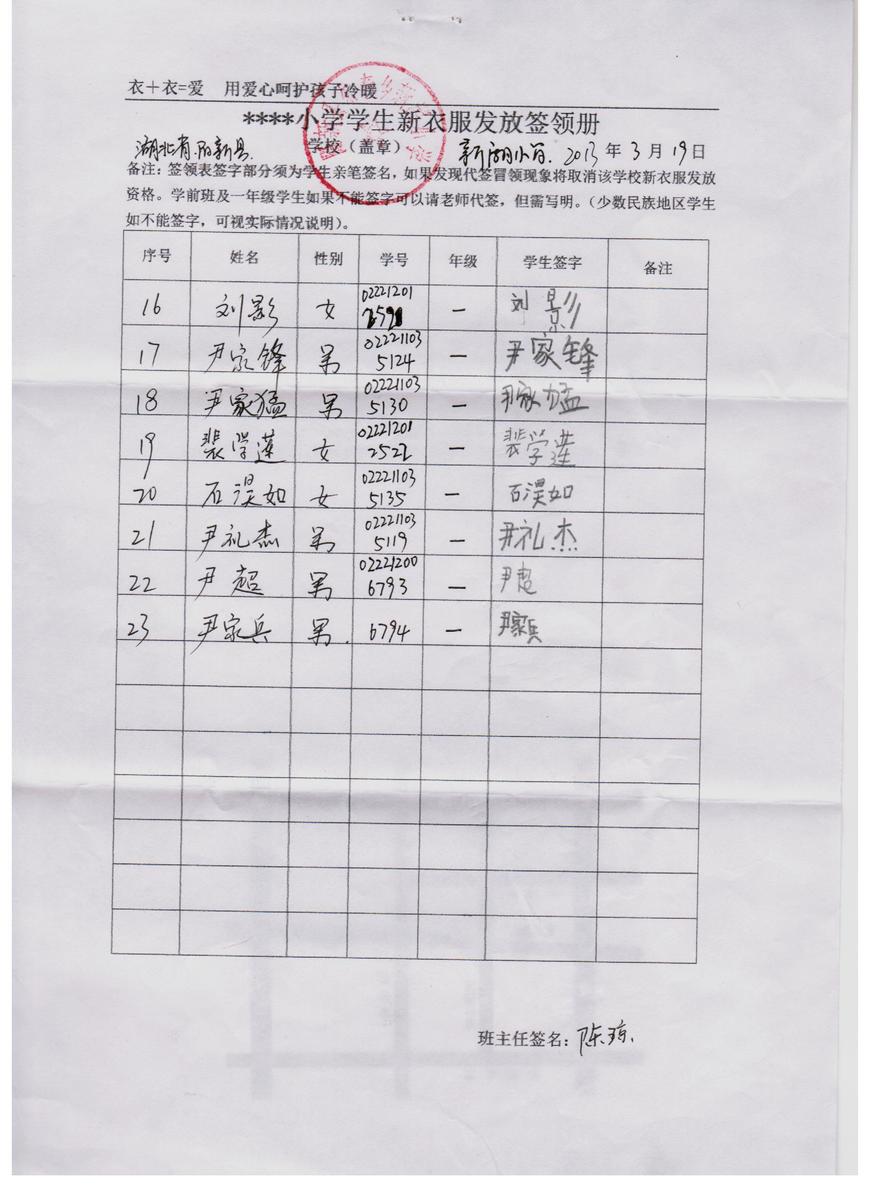 衣＋衣=爱 用爱心呵护孩子冷暖
****小学学生新衣服发放签领册
湖北省阳新县 学校（盖章） 新湖小学 2013 年 3 月 19 日
备注：签领表签字部分须为学生亲笔签名，如果发现代签冒领现象将取消该学校新衣服发放
资格。学前班及一年级学生如果不能签字可以请老师代签，但需写明。（少数民族地区学生
如不能签字，可视实际情况说明）。
序号 姓名 性别 学号 年级 学生签字 备注
16 刘影 女 02221201 一 刘影
17 尹家锋 男 02221103 5124 一 尹家锋
18 尹家猛 男 02221103 5130 一 尹家猛
19 裴学莲 女 02221201 2522 一 裴学莲
20 石淏如 女 02221103 5135 一 石淏如
21 尹礼杰 男 02221103 5119 一 尹礼杰
22 尹超 男 02221200 6793 一 尹超
23 尹家兵 男 6794 一 尹家兵
班主任签名：陈琼